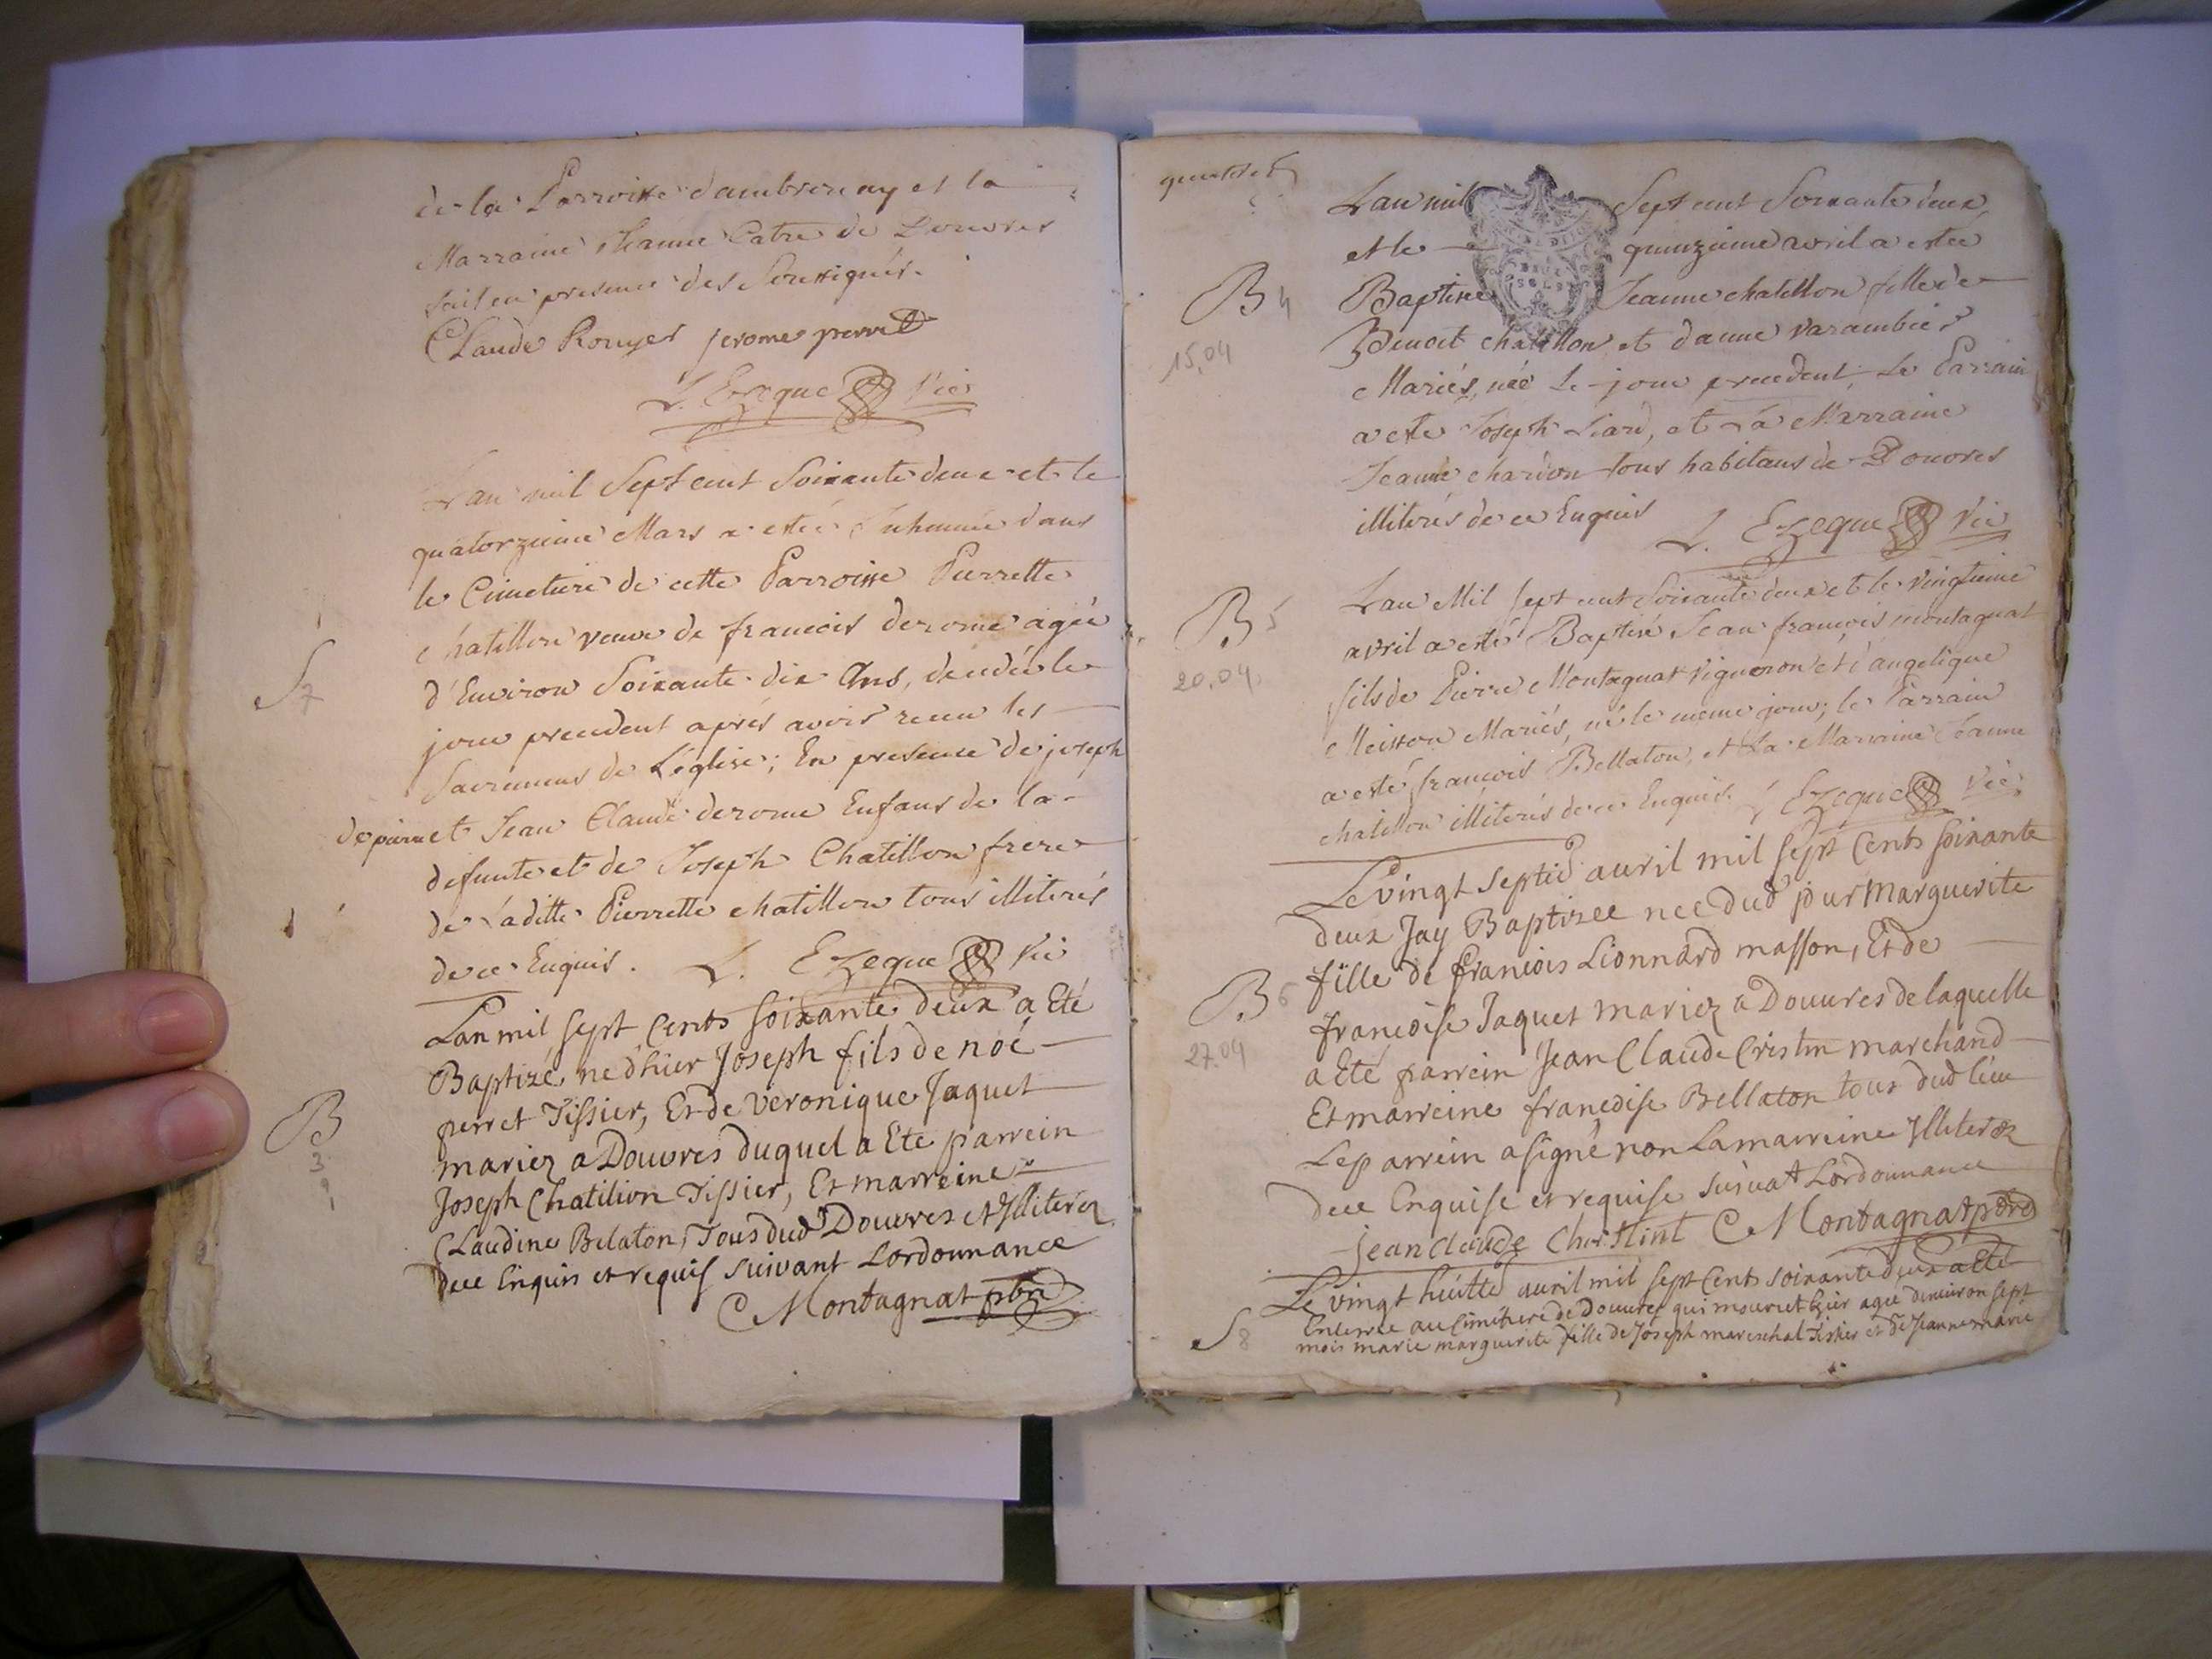 de la Parroisse dambronay et la
Marraine Jeanne Catre de Douvres
fait en presence des Soussignés.
Claude Rouyer jerome perret
L. Ezeque Vic
Lan mil Sept cent Soixante deux et le
quatorzieme Mars a esteé Inhumée dans
le Cimetiere de cette Parroisse Pierrette
chatillon veuve de francois derome agée
S 7
d'Environ Soixante dix Ans, decedée le
jour precedent aprés avoir receu les
Sacremens de L'église; En presence de joseph
de pierre et Jean Claude derome Enfans de la
defunte et de Joseph Chatillon frere
de Laditte Pierrette chatillon tous illiterés
de ce Enquis. L. Ezeque Vic
Lan mil sept Cents soixante deux a Eté
Baptizé, ne d'hier Joseph fils de noé
B 3
perret Tissier, Et de veronique Jaquet
mariez a Douvres duquel a Eté parrein
Joseph Chatilion Tissier, Et marreine
Claudine Belaton, Tous dud Douvres et Illiterez
dece Enquis et requis suivant Lordonnance
C Montagnat pbre
Lan mil Sept cent Soixante deux
et le quinzieme avril a estée
B 4
Baptisée Jeanne chatillon fille de
15,04
Benoit chatillon et danne varambier
Mariés, née le jour precedent; Le Parrain
a esté Joseph Liard, et La Marraine
Jeanne chardon tous habitans de Douvres
illiterés de ce Enquis L. Ezeque Vic
B 5
Lan Mil Sept cent Soixante deux et le vingtieme
avril a esté Baptisé Jean francois montagnat
20.04
fils de Pierre Montagnat Vigneron et d'angelique
Meisson Mariés, né le meme jour; le Parrain
a esté francois Bellaton, et La Marraine Jeanne
chatillon illiterés de ce Enquis. L Ezeque Vic
Le vingt septie avril mil sept Cents soixante
deux Jay Baptizee nee dud jour Marguerite
B 6
fille de francois Lionnard masson, Et de
francoise Jaquet mariez a Douvres de laquelle
27.04
a Eté parrein Jean Claude Cristin marchand
Et marreine francoise Bellaton tous dud lieu
Le parrein a signé non La marreine Illiterez
dece Enquise et requise suivat Lordonnance
jean claude Christint C Montagnat pbre
Le vingt huitte avril mil sept Cents soixante deux a Eté
Enterree au Cimitiere de Douvres qui mourut hier agee denviron sept
S 8
mois marie marguerite fille de Joseph mareschal Tissier et de Jeanne marie